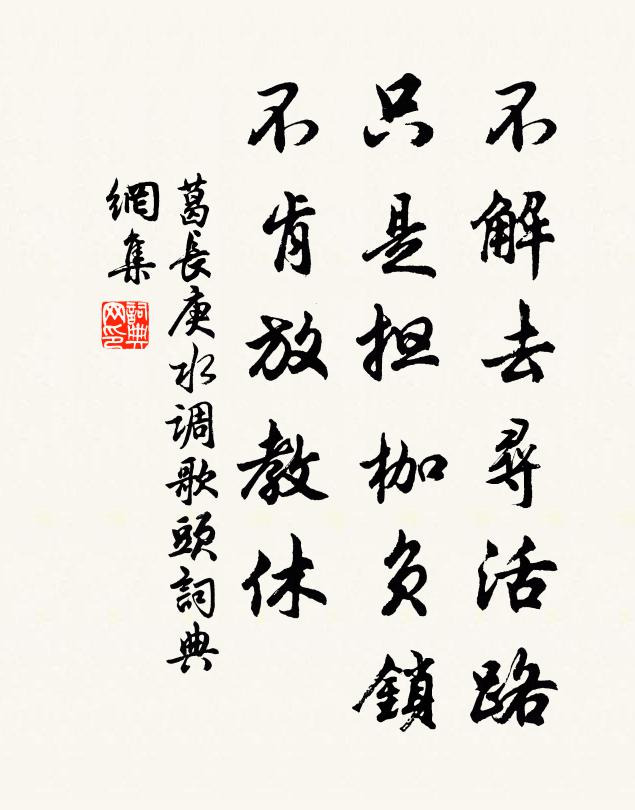 不解去尋活路
只是担枷负鎖
不肯放教休
葛長庚水调歌頭詞典
網集
詞典网印